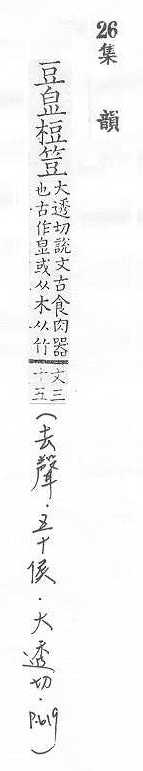 26 集韻
豆皀梪荳大透切說文古食肉器
也古作皀或从木从竹文三
十五
(去聲．五十候．大透切．P.619)